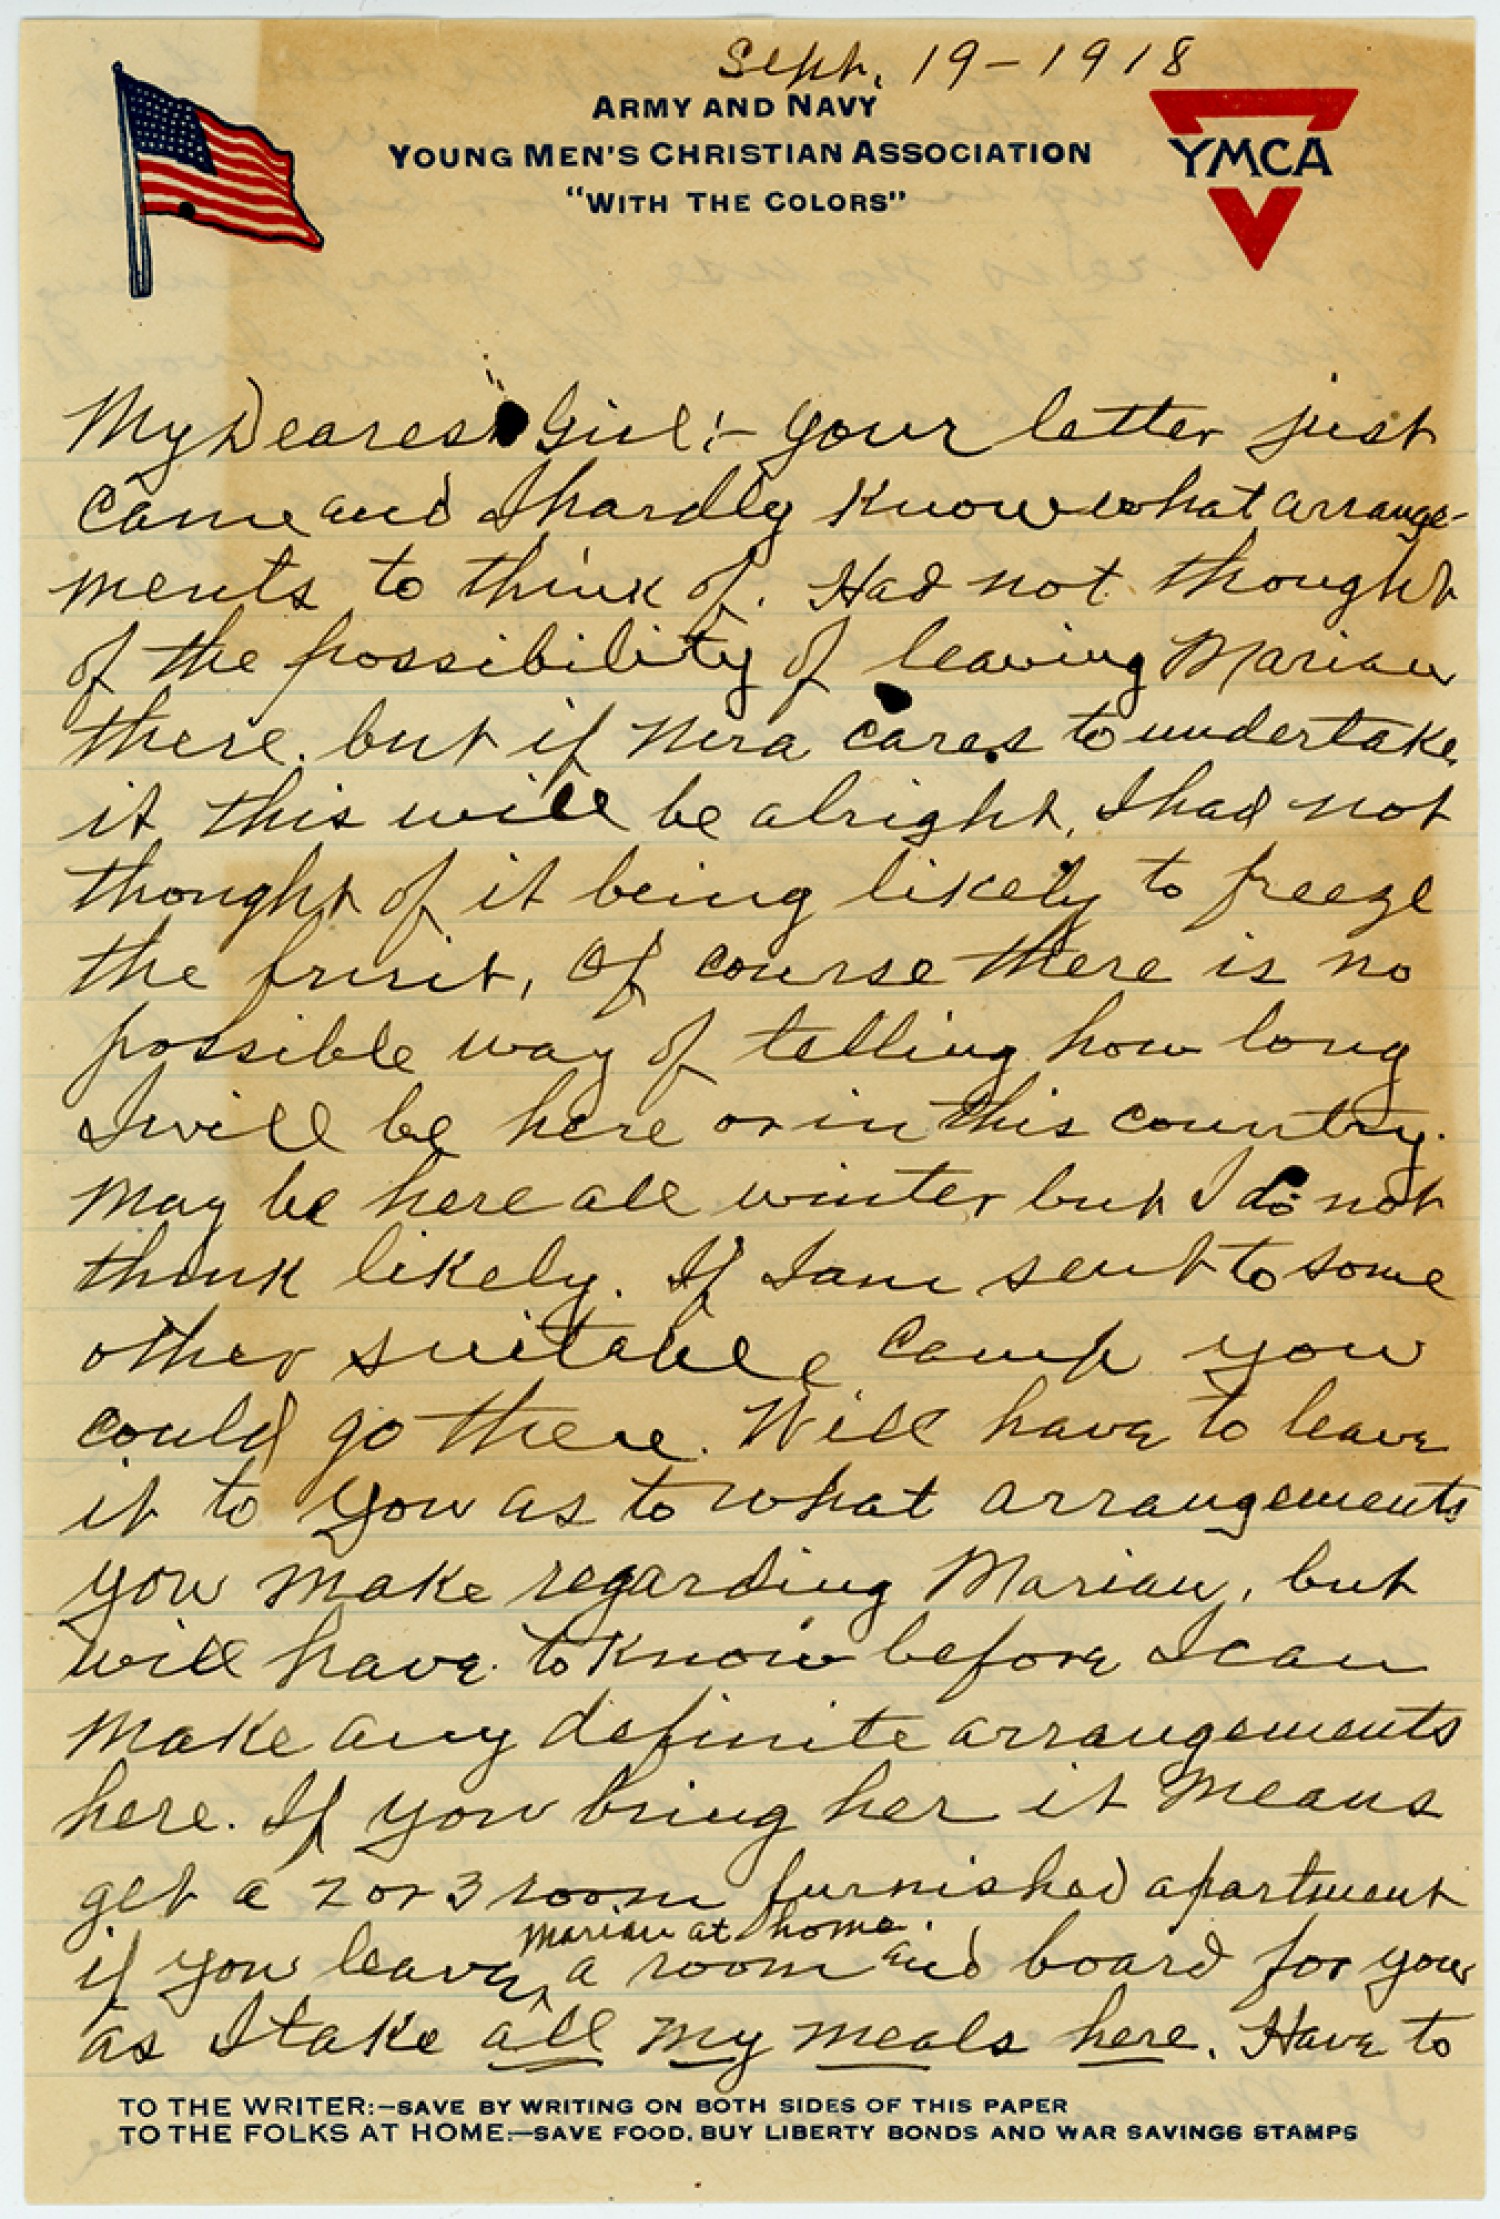 Sept. 19-1918
ARMY AND NAVY
YOUNG MEN'S CHRISTIAN ASSOCIATION
"WITH THE COLORS"
YMCA
My Dearest Girl:- Your letter just
came and I hardly know what arrange-
ments to think of. Had not thought
of the possibility of leaving Marian
there. but if Nera cares to undertake
it this will be alright. I had not
thought of it being likely to freeze
the fruit, Of course there is no
possible way of telling how long
I will be here or in this country.
May be here all winter but I do not
think likely. If I am sent to some
other suitable camp you
could go there. Will have to leave
it to you as to what arrangements
you make regarding Marian, but
will have to know before I can
make any definite arrangements
here. If you bring her it means
get a 2 or 3 room furnished apartment
Marian at home.
if you leave ^ a room and board for you
as I take all my meals here. Have to
TO THE WRITER:-SAVE BY WRITING ON BOTH SIDES OF THIS PAPER
TO THE FOLKS AT HOME:-SAVE FOOD, BUY LIBERTY BONDS AND WAR SAVINGS STAMPS